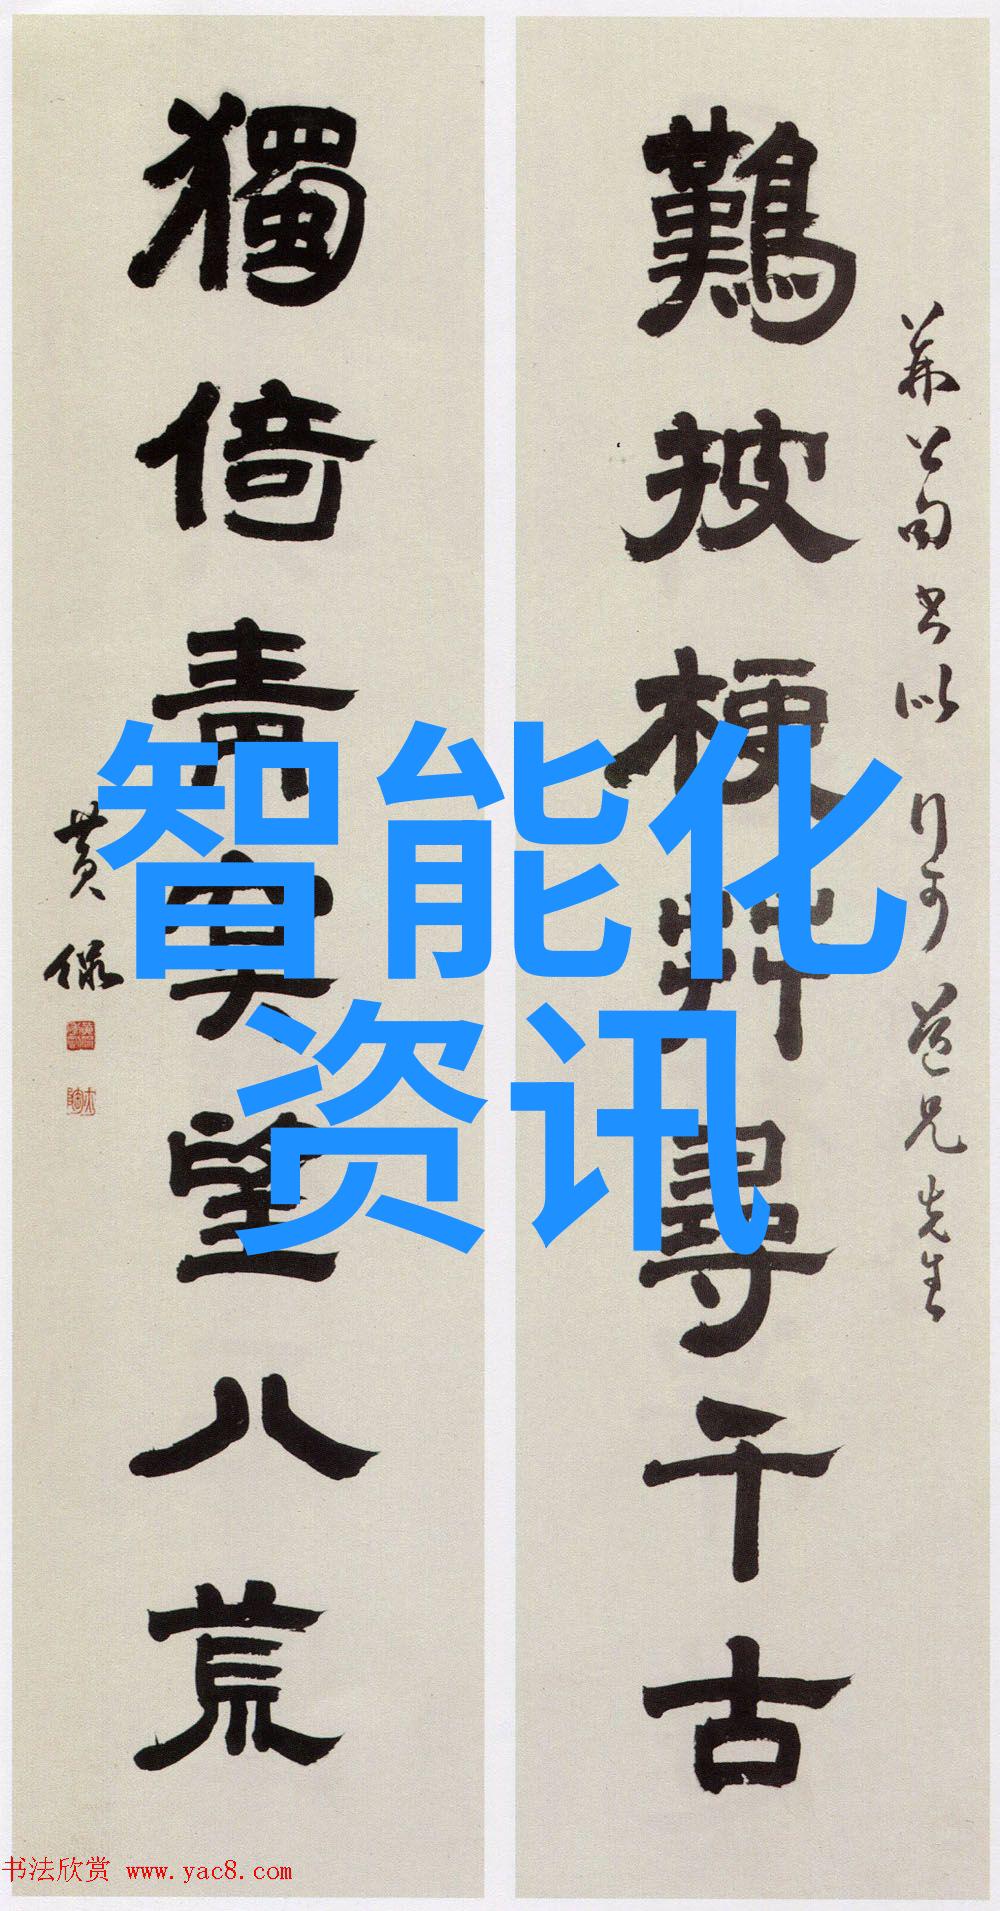 難披榛艸尋千古
獨倚青冥望八荒
黄保
智能化
资讯
书法欣赏 www.yac8.com